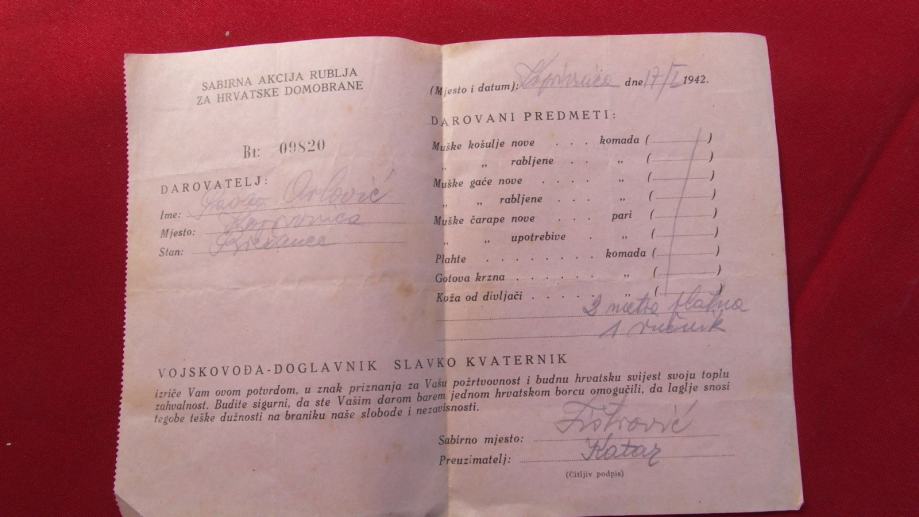 SABIRNA AKCIJA RUBLJA
ZA HRVATSKE DOMOBRANE
Br: 09820
DAROVATELJ:
Ime: Orlović
Mjesto: Koprivnica
Stan:
(Mjesto i datum): Koprivnica dne 17/I 1942.
DAROVANI PREDMETI:
Muške košulje nove . . . komada (
„ „ rabljene . . . „ (
Muške gaće nove . . . . „ (
„ „ rabljene . . . „ (
Muške čarape nove . . . pari (
„ „ upotrebive . „ (
Plahte . . . . . . . . komada (
Gotova krzna . . . . . . . „ (
Koža od divljači . . . . . „ (
2 metra platna
1 ručnik
VOJSKOVOĐA-DOGLAVNIK SLAVKO KVATERNIK
izriče Vam ovom potvrdom, u znak priznanja za Vašu požrtvovnost i budnu hrvatsku svijest svoju toplu
zahvalnost. Budite sigurni, da ste Vašim darom barem jednom hrvatskom borcu omogućili, da laglje snosi
tegobe teške dužnosti na braniku naše slobode i nezavisnosti.
Sabirno mjesto:
Preuzimatelj:
(Čitljiv podpis)